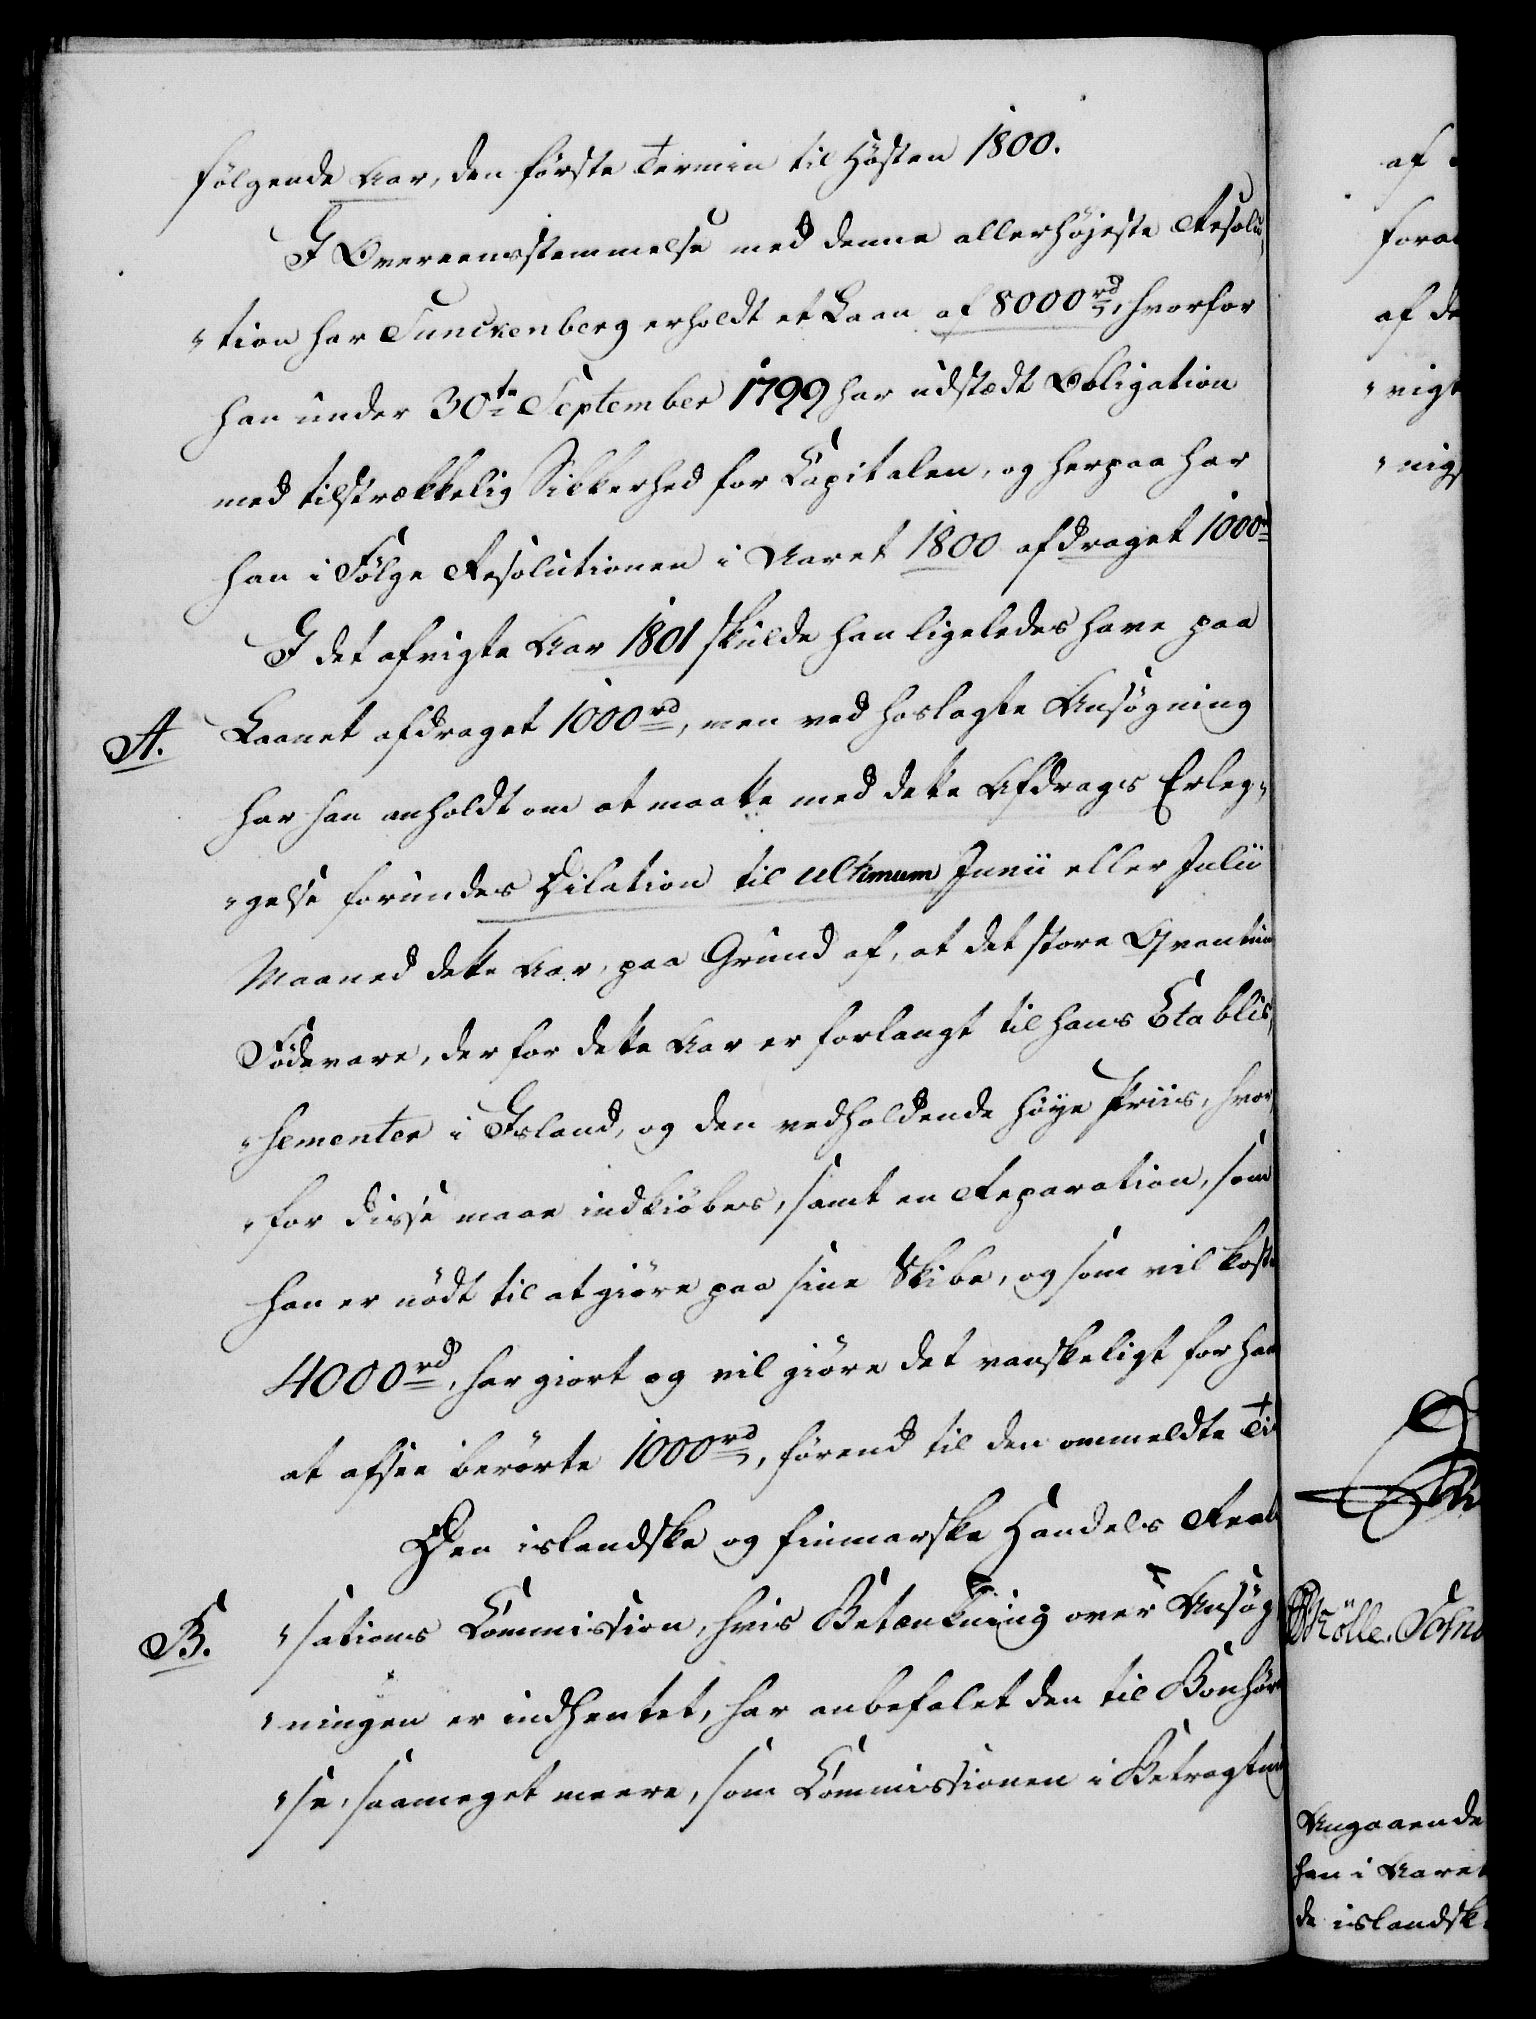 følgende Aar, den første Termin til Høsten 1800.
I Overeensstemmelse med denne allerhøjeste Resolu,
"tion har Sunckenberg erholdt et Laan af 8000 rd, hvorfor
han under 30te September 1799 har udstædt Obligation
med tilstrækkelig Sikkerhed for Capitalen, og herpaa har
han i Følge Resolutionen i Aaret 1800 afdraget 1000 rd
I det afvigte Aar 1801 skulde han ligeledes have paa
A. Laanet afdraget 1000 rd, men ved hoslagte Ansøgning
har han anholdt om at maatte med dette Afdrags Erleg,
"gelse forundes Dilation til ultimum Junii eller Julii
Maaned dette Aar, paa Grund af, at det store Qvantum
Fødevare, der for dette Aar er forlangt til hans Etablis,
"sementer i Island, og den vedholdende høye Priis, hvor
"for disse maae indkiøbes, samt en Reparation, som
han er nødt til at giøre paa sine Skibe, og som vil koste
4000 rd, har giort og vil giøre det vanskeligt for ham
at afsee berørte 1000 rd, førend til den ommeldte Tid
Den islandske og finmarske Handels Reali
B. "sations Commission, hvis Betænkning over Ansøg
"ningen er indhentet, har anbefalet den til Bønhørel
"se, saameget meere, som Commissionen i Betragtning
af
foran
af de
"rigt
"nigs
Mölle.
Angaaende
han i Aaret
de islandske